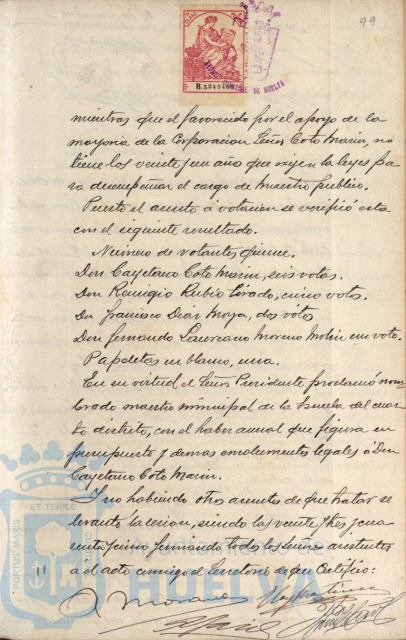 99
AYUNTAMIENTO DE HUELVA
mientras que el favorecido por el apoyo de la
mayoria de la Corporacion Señor Coto Marin, no
tiene los veinte y un año que exijen la leyes pa
ra desempeñar el cargo de Maestro publico.
Puesto el asunto á votacion se verificó esta
con el siguiente resultado.
Número de votantes quince.
Don Cayetano Coto Marin, seis votos.
Don Remigio Rubio Tirado, cinco votos.
Dn Francisco Diaz Moya, dos votos
Don Fernando Laureano Moreno Molin un voto.
Papeletas en blanco, una.
En su virtud el Señor Presidente proclamó nom
brado maestro municipal de la Escuela del cuar
to distrito, con el haber anual que figura en
presupuesto y demas emolumentos legales á Don
Cayetano Coto Marin.
Y no habiendo otros asuntos de que tratar se
levantó la sesion, siendo las veinte y tres y cua
renta y cinco firmando todos los Señores asistentes
á el acto conmigo el Secretario de que Certifico:
PORTUS MARIS ET TERRAE
Ayuntamiento de
HUELVA